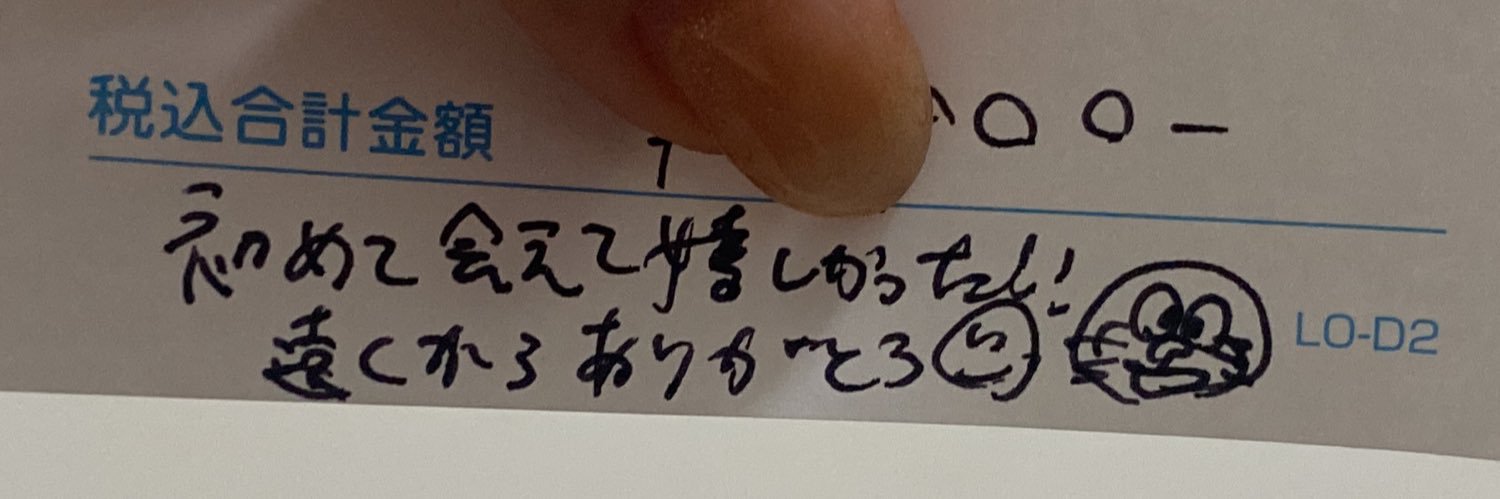 税込合計金額 00-
初めて会えて嬉しかったし!
遠くからありがとう
LO-D2